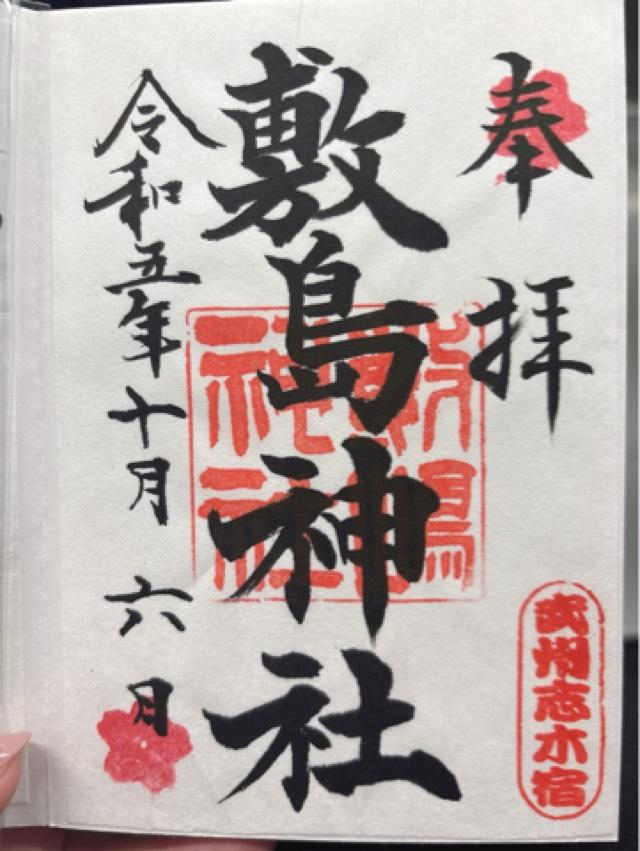 奉拝
武州志木宿
敷島神社
敷島
神社
令和五年十月六日